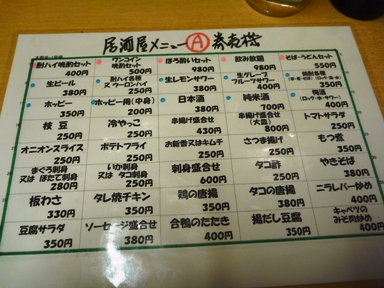 居酒屋メニューⒶ券売機
酎ハイ晩酌セット 400円
ワンコイン晩酌セット 500円
ほろ酔いセット 980円
飲み放題 980円
そば・うどんセット 550円
生ビール 380円
酎ハイ各種 又 ウーロンハイ 250円
生レモンサワー 380円
生グレープフルーツサワー 400円
焼酎各種 400円
ホッピー 350円
ホッピー用(中身) 200円
日本酒 380円
純米酒 700円
梅酒 (ロック・水・サワー) 400円
枝豆 250円
冷やっこ 250円
串揚げ盛合せ 430円
串揚げ盛合せ (大皿) 800円
トマトサラダ 250円
オニオンスライス 250円
ポテトフライ 250円
お新香又はキムチ 250円
さつま揚げ 250円
もつ煮 350円
まぐろ刺身 又は ほたて刺身 280円
いか刺身 又は タコ刺身 250円
刺身盛合せ 600円
タコ酢 250円
やきそば 380円
板わさ 330円
タレ焼チキン 350円
鶏の唐揚 350円
タコの唐揚 380円
ニラレバー炒め 400円
豆腐サラダ 350円
ソーセージ盛合せ 380円
合鴨のたたき 400円
揚だし豆腐 350円
キャベツのみそ肉炒め 400円